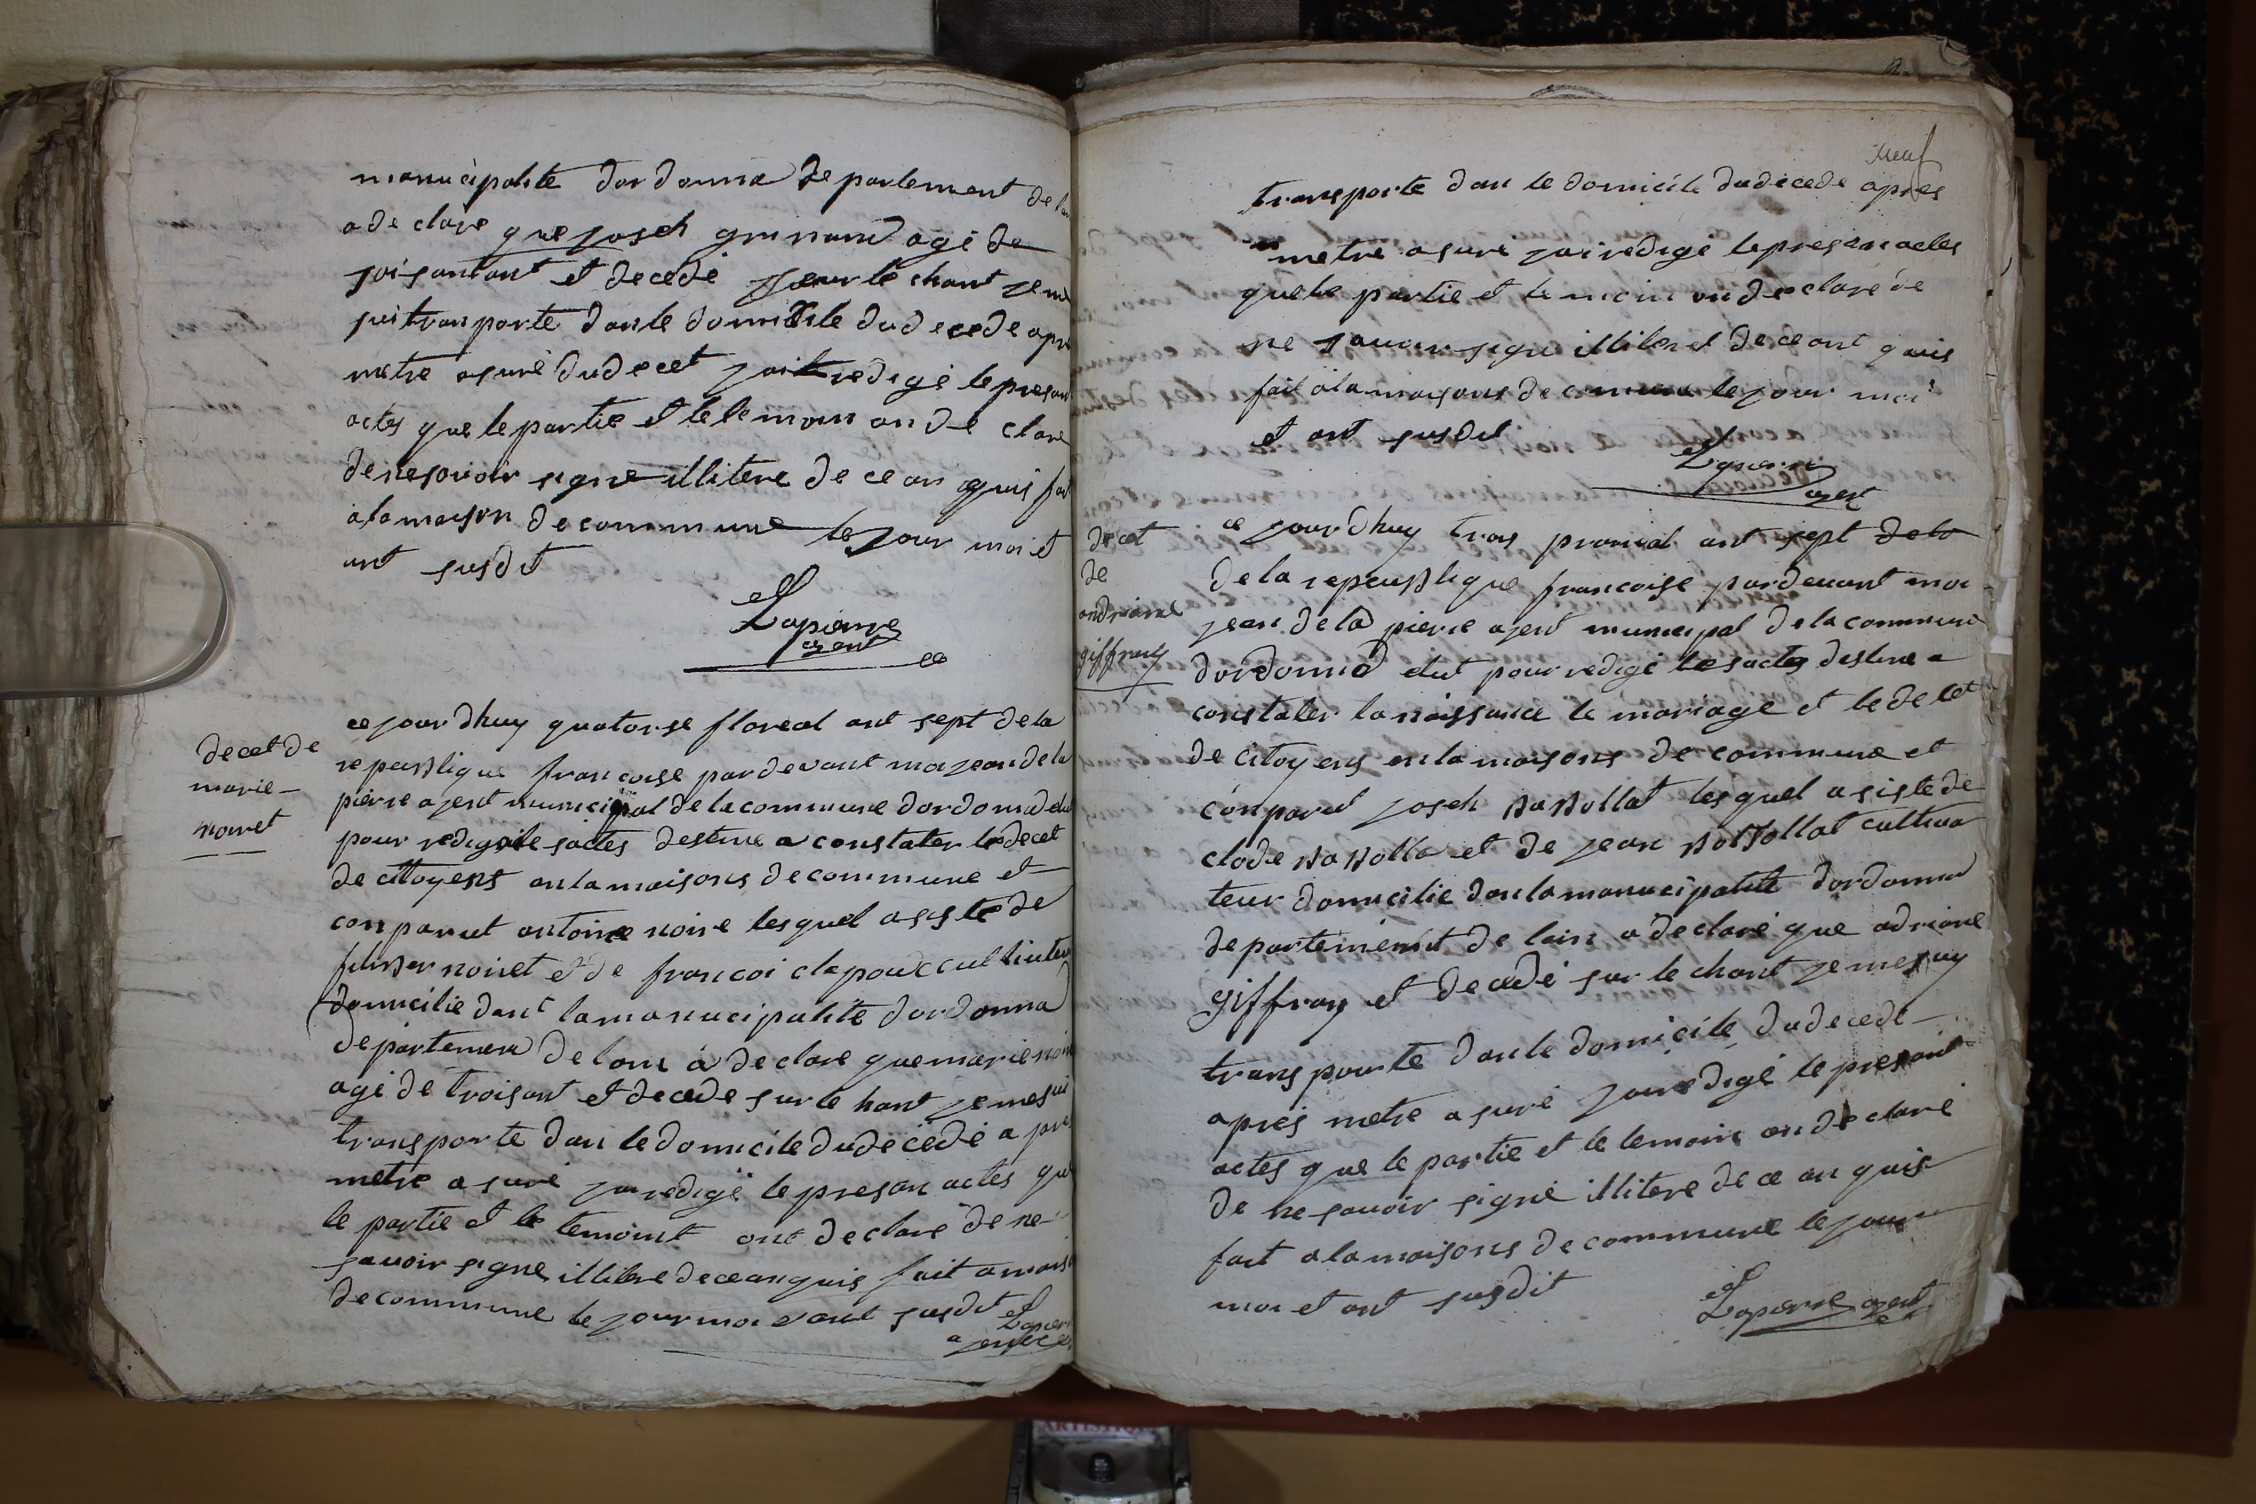 manucipalite dordonna departement de lain
a de clare que josch grinand agé de
soisantant et decedé seur le chant je me
suitranporte dan le domicile du de cede apre
metre asuré du decet jait redigé le presant
actes que le partie et le temoin on de clare
de nesavoir signe illitere de ce an quis fait
a la maison de commune le jour moi et
ant susdit
Lapierre
agent
decet de
marie
noiret
ce jour dhuy quatorse floreal ant sept de la
repeublique francoise par devant moi jean de la
pierre ajent municipal de la commune dordonna elu
pour redigé le sactes destine a constater le decet
de citoyens an la maisons de commune et
conparut antoine noire lesquel asiste de
noiret et de francoi clapoux cultiuteur
domicilie dant la manucipalite dordonna
departement de lain à de clare que marie noiret
agé de troisant et decede sur le hant je me sui
transporte dan le domicile dudecedé a pre
metre a suré jai redigé le presan actes que
le partie et le temoint ont de clare de ne
savoir signe illitere de ce an quis fait a maison
de commune le jour moi et ant susdit
Lapierre
ajent
neuf
transporte dan le domicile dudecede apres
metre asuré jai redigé le presan actes
que le partie et le moin on de claré de
ne savoir signe illiteret de ce ant quis
fait a la maisons de commune le jour moi
et ant susdit
Lapierre
agent
decet
de
andriane
giffray
ce jour dhuy trois prairial ant sept de la
de la repeublique francoise par devant moi
jean de la pierre ajent municipal de la commune
dordonna elut pour redigé le sactes destine a
constater la naissance le mariage et le decet
de citoyens en la maisons de commune et
conparut josch babollat lesquel asiste de
clode babolla et de jean babollat cultiva
teur domicilie dan la manucipalite dordonna
departement de lain a declaré que adriane
giffray et decedé sur le chant je me suy
transpourte dan le domicile du decede
aprés metre a suré jai redigé le presant
actes que le partie et le temoin on de claré
de ne savoir signé illitere de ce an quis
fait a la maisons de commune le jour
moi et ant susdit
Lapierre agent